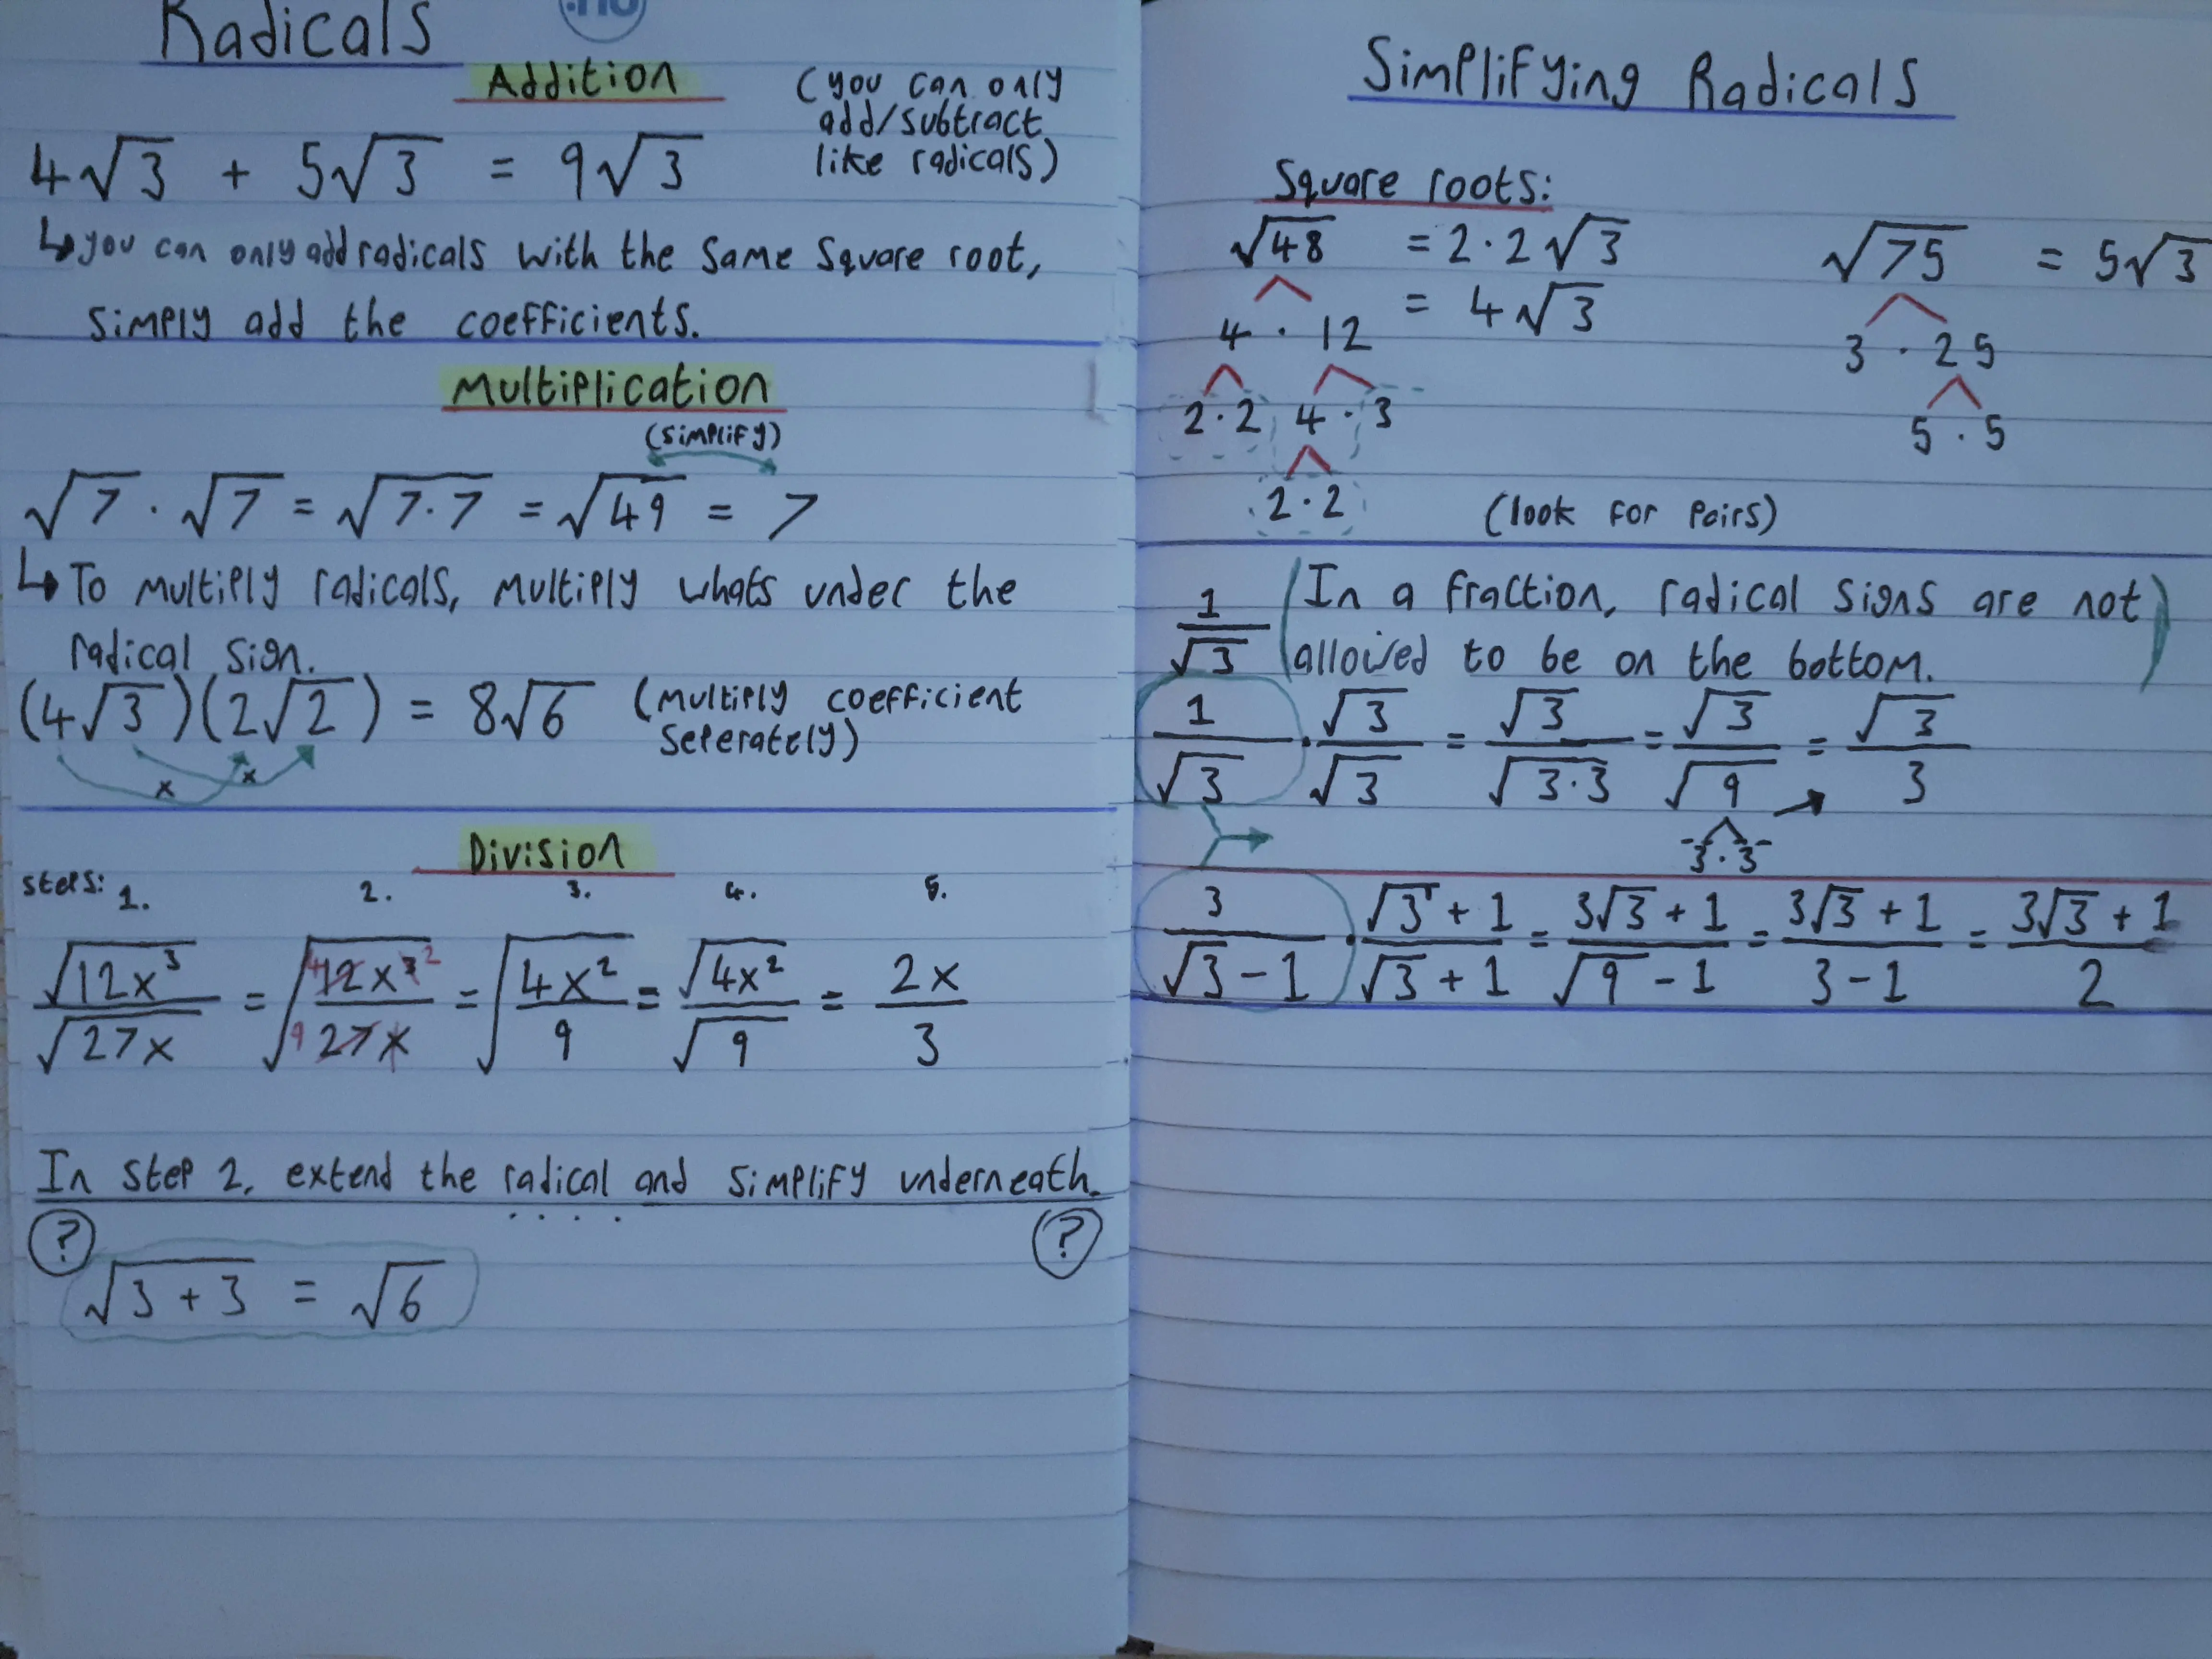 Radicals
.nu
Addition
(you can only
add/subtract
like radicals)
4√3 + 5√3 = 9√3
↳ you can only add radicals with the same square root,
simply add the coefficients.
Multiplication
(simplify)
√7 · √7 = √7·7 = √49 = 7
↳ To multiply radicals, multiply whats under the
radical sign.
(4√3)(2√2) = 8√6 (multiply coefficient
seperately)
x x
Division
steps: 1. 2. 3. 4. 5.
√12x³/√27x = √(4 12x³ ²/9 27x) = √(4x²/9) = √4x²/√9 = 2x/3
In step 2, extend the radical and simplify underneath.
? ?
√3+3 = √6
Simplifying Radicals
Square roots:
√48 = 2·2√3
= 4√3
4 · 12
2·2 4·3
2·2
√75 = 5√3
3 · 25
5 · 5
(look for pairs)
1/√3 (In a fraction, radical signs are not
allowed to be on the bottom.)
1/√3 · √3/√3 = √3/√3·3 = √3/√9 = √3/3
3·3
3/(√3-1) · (√3+1)/(√3+1) = (3√3+1)/(√9-1) = (3√3+1)/(3-1) = (3√3+1)/2